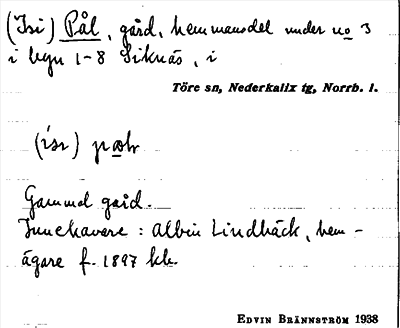 (Isi) Pål, gård, hemmansdel under no 3
i byn 1-8 Siknäs, i
Töre sn, Nederkalix tg, Norrb. l.
Gammal gård.
Innehavare : Albin Lindbäck, hem-
ägare f. 1897 
EDVIN BRÄNNSTRÖM 1938